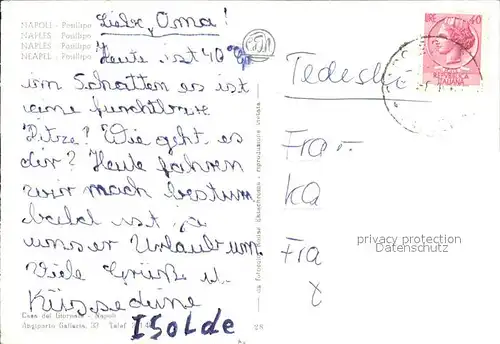 NAPOLI - Posillipo
NAPLES - Posillipo
NAPLES - Posillipo
NEAPEL - Posillipo
Liebe Oma!
Heute ist 40°
im Schatten es ist
eine furchtbare
Hitze? Wie geht es
dir? Heute fahren
wir nach
ist ja
unser Urlaub um.
Viele Grüße u.
Küsse deine
Isolde
Casa del Giornale - Napoli
Angiporto Galleria, 33 Telef.
28
LIRE 40
Tedeschi
Fra
ka
Fra
privacy protection
Datenschutz